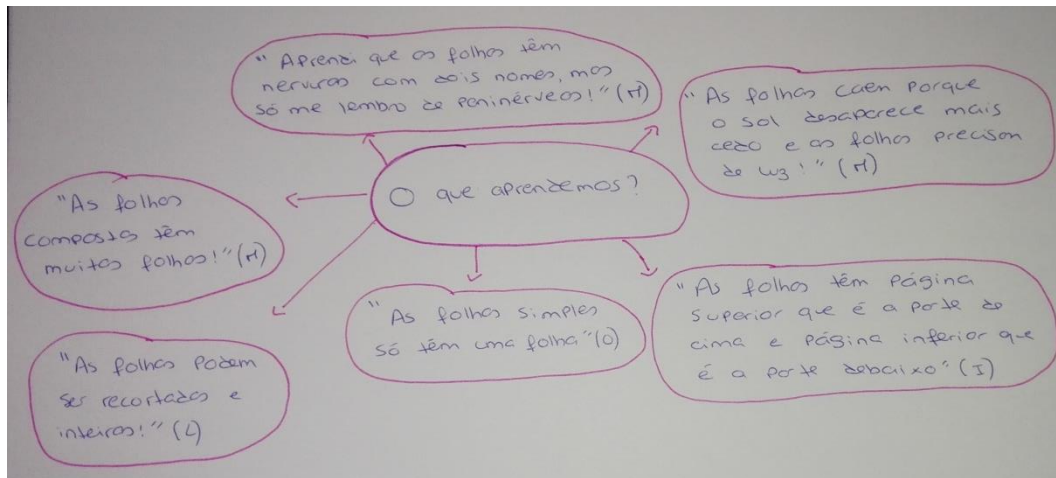 " Aprendi que as folhas têm
nervuras com dois nomes, mas
só me lembro de peninérveas!" (M)
"As folhas caem porque
o sol desaparece mais
cedo e as folhas precisam
de luz!" (M)
O que aprendemos?
"As folhas
compostas têm
muitas folhas!" (M)
"As folhas simples
só têm uma folha" (O)
"As folhas têm página
superior que é a parte de
cima e página inferior que
é a parte debaixo" (I)
"As folhas podem
ser recortadas e
inteiras!" (L)